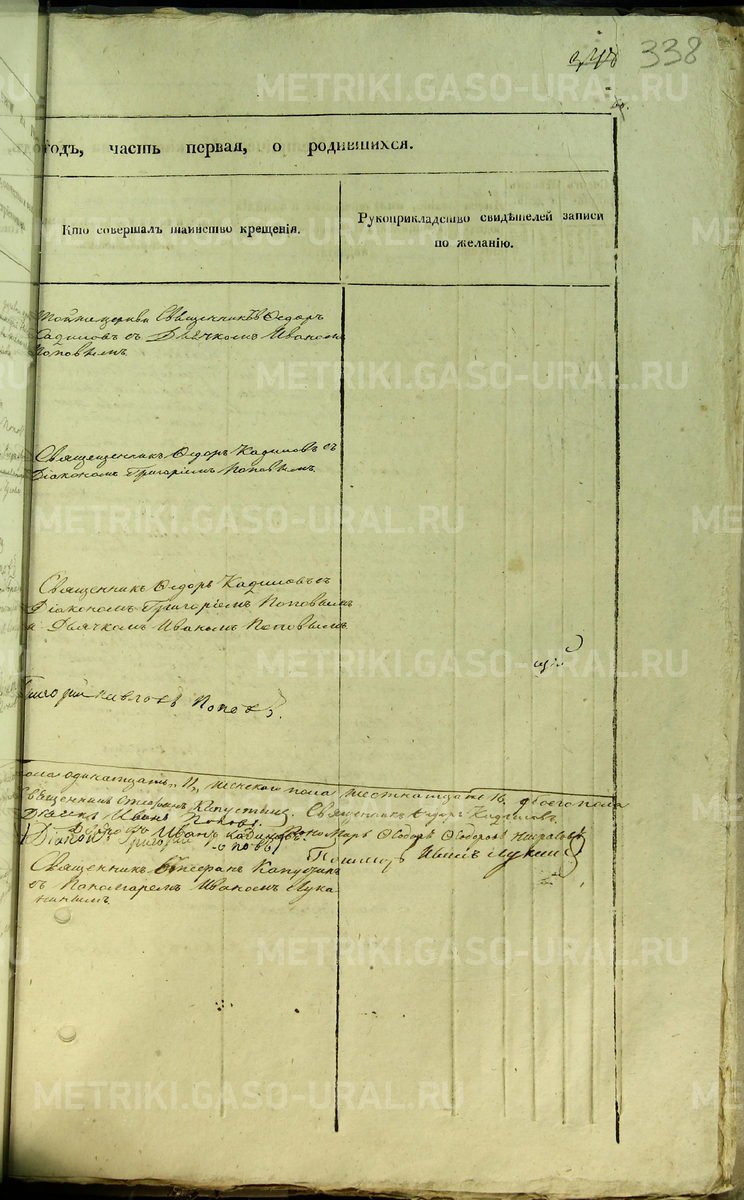 338
METRIKI.GASO-URAL.RU
годъ, часть первая, о родившихся.
Кто совершалъ таинство крещенія.
Рукоприкладство свидѣтелей записи
по желанію.
Тойже церкви Священникъ Ѳедоръ
Кадиловъ съ Дьячкомъ Иваномъ
Поповымъ
Священникъ Ѳедоръ Кадиловъ съ
Діакономъ Григоріемъ Поповымъ
Священникъ Ѳедоръ Кадиловъ съ
Діакономъ Григоріемъ Поповымъ
и Дьячкомъ Иваномъ Поповымъ
Поповъ
пола одинатцать 11, женскаго пола шестнатцать 16 обоего пола
Священникъ Стефанъ Капустинъ. Священникъ Ѳедоръ Кадиловъ.
Дьячекъ Иванъ Поповъ.
Иванъ Кадиловъ. Пономарь Ѳеодоръ
Діаконъ Григорій Поповъ
Пономарь Иванъ Лукинъ
Священникъ Стефанъ Капустинъ
съ Пономаремъ Иваномъ Лука
нинымъ